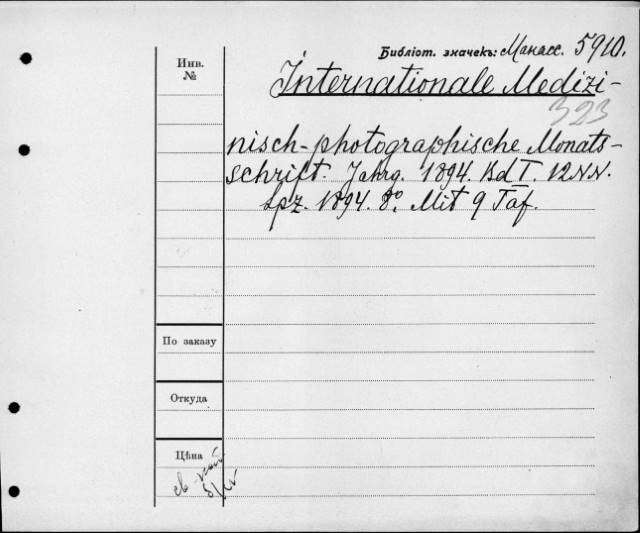 Библіот. значекъ: Манасс. 5910.
Internationale Medizi-
323
nisch-photographische Monats-
schrift. Jahrg. 1894. Bd I. 12 N.N.
Lpz. 1894. 8º. Mit 9 Taf.
Инв.
№
По заказу
Откуда
Цѣна